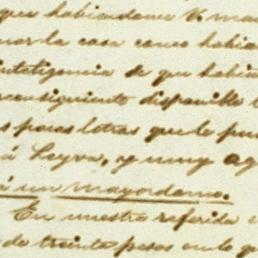 que habiendome V. ma
nar la casa como habia
inteligencia de que habia
reconsiguiente disponible t
s pocas letras que le pu
á Leyva, y muy ag
á un mayordomo.
En nuestra referida
de treinta pesos en lo q